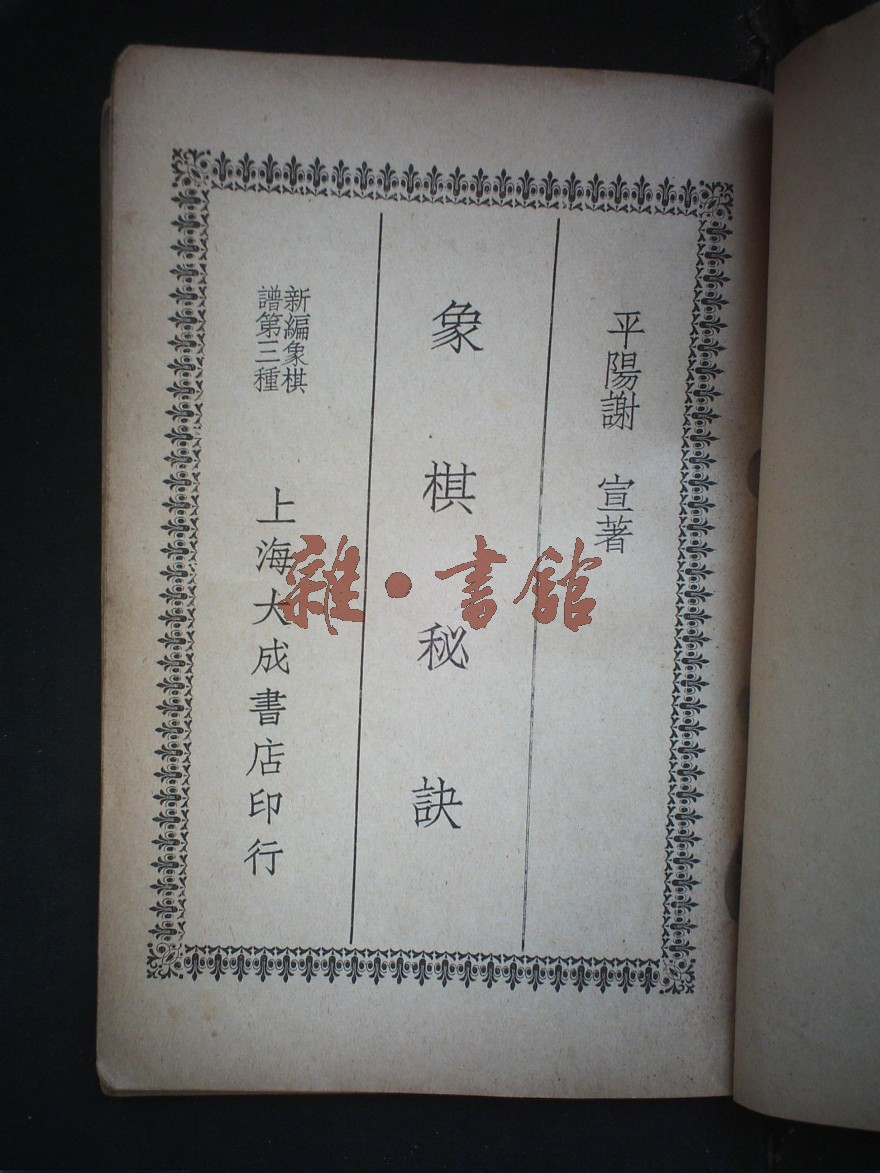 平陽謝　宣著
象棋秘訣
新編象棋
譜第三種
上海大成書店印行
雜·書館